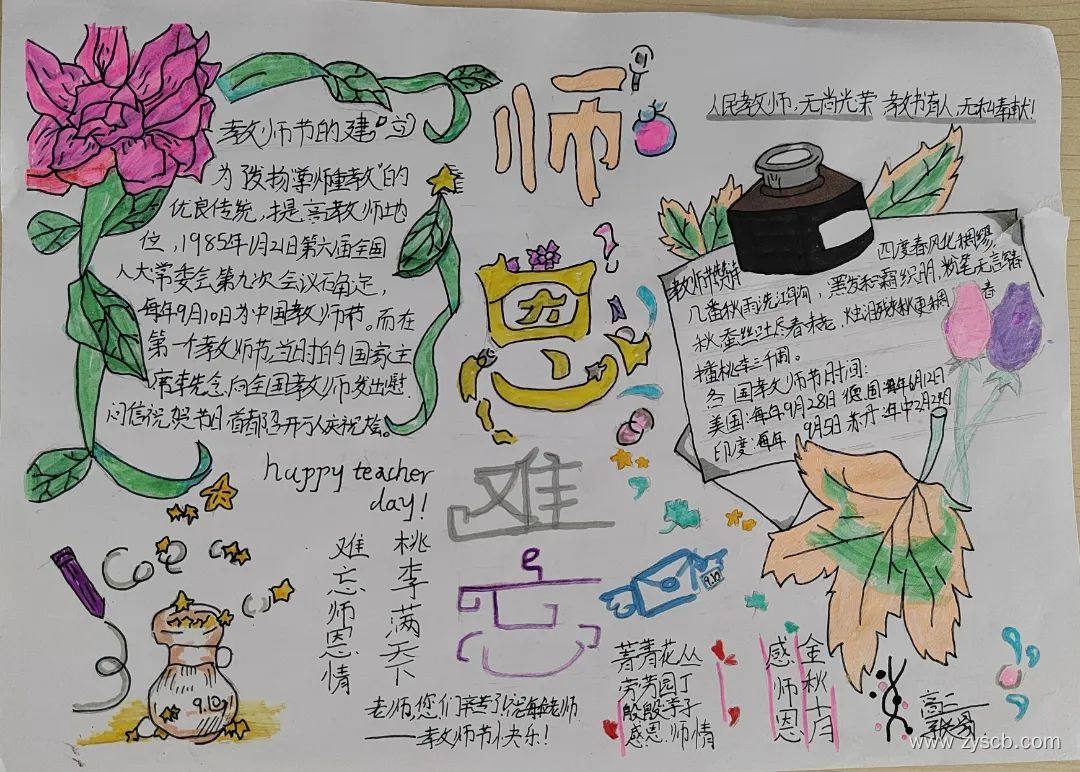 教师节的建立
为发扬"尊师重教"的
优良传统,提高教师地
位,1985年1月21日第六届全国
人大常委会第九次会议确定,
每年9月10日为中国教师节。而在
第一个教师节,当时的国家主
席李先念,向全国教师发出慰
问信祝贺节日首都召开万人庆祝会。
师恩难忘
人民教师,无尚光荣 教书育人,无私奉献!
教师节赞诗
四度春风化绸缪,
几番秋雨洗江 黑发积霜织 粉笔无言
秋蚕丝吐尽春未老,
播桃李三千圃。
各国教师节日时间:
美国:每年9月28日 德国:每年6月12日
印度:每年 9月5日 苏丹:年中2月24日
happy teacher
day!
桃李满天下
难忘师恩情
老师,您们辛苦了
——教师节快乐!
9.10
9.10
菁菁花丛
芳芳园丁
殷殷学子
感恩师情
金秋十月
感师恩
高二
www.zyscb.com